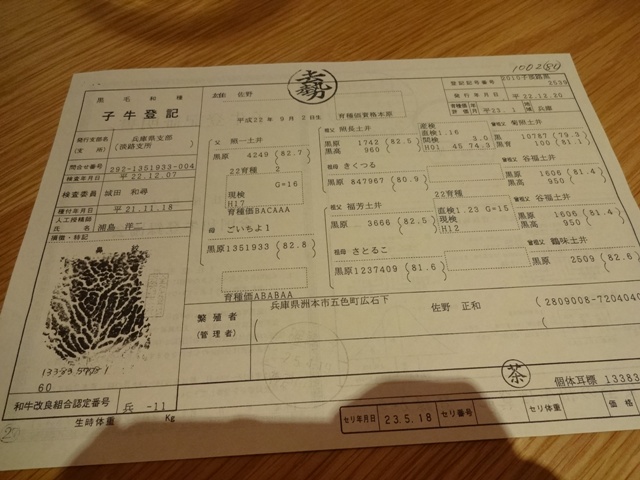 1002(84)
黒毛和種
子牛登記
去勢
産地 佐野
平成22年 9月 2日生
育種価資格本原
登記記号番号 2010子淡路黒 2539
発行年月日 平 22.12.20
育種価年評価月 平23.1 地域 兵庫
発行支部名 (支所) 兵庫県支部 (淡路支所)
問合せ番号 292-1351933-004
検査年月日 平 22.12.07
検査委員 城田 和尋
種付年月日 平 21.11.18
人工授精師氏名 浦島 洋二
損徴・特記
鼻紋
60
父 照一土井
黒原 4249 (82.7)
22育種 2
G=16
現検
H17
育種価BACAAA
母 ごいちよ1
黒原1351933 (82.8)
育種価ABABAA
祖父 照長土井
黒原 1742 (82.5)
黒高 960
産検
直検1.16
間検 3.0
H01 45 74.3
祖母 きくつる
黒原 847967 (80.9)
祖父 福芳土井
黒原 3666 (82.5)
22育種
直検1.23 G=15
現検
H12
祖母 さとるこ
黒原1237409 (81.6)
曽祖父 菊照土井
黒原 10787 (79.3)
黒育 100 (81.1)
曽祖父 谷福土井
黒原 1606 (81.4)
黒高 950
曽祖父 谷福土井
黒原 1606 (81.4)
黒高 950
曽祖父 鶴味土井
黒原 2509 (82.6)
繁殖者 (管理者)
兵庫県洲本市五色町広石下
佐野 正和
(2809008-7204040
茶
個体耳標 13383
和牛改良組合認定番号 兵 -11
生時体重 Kg
セリ年月日 23.5.18 セリ番号 セリ体重 価格